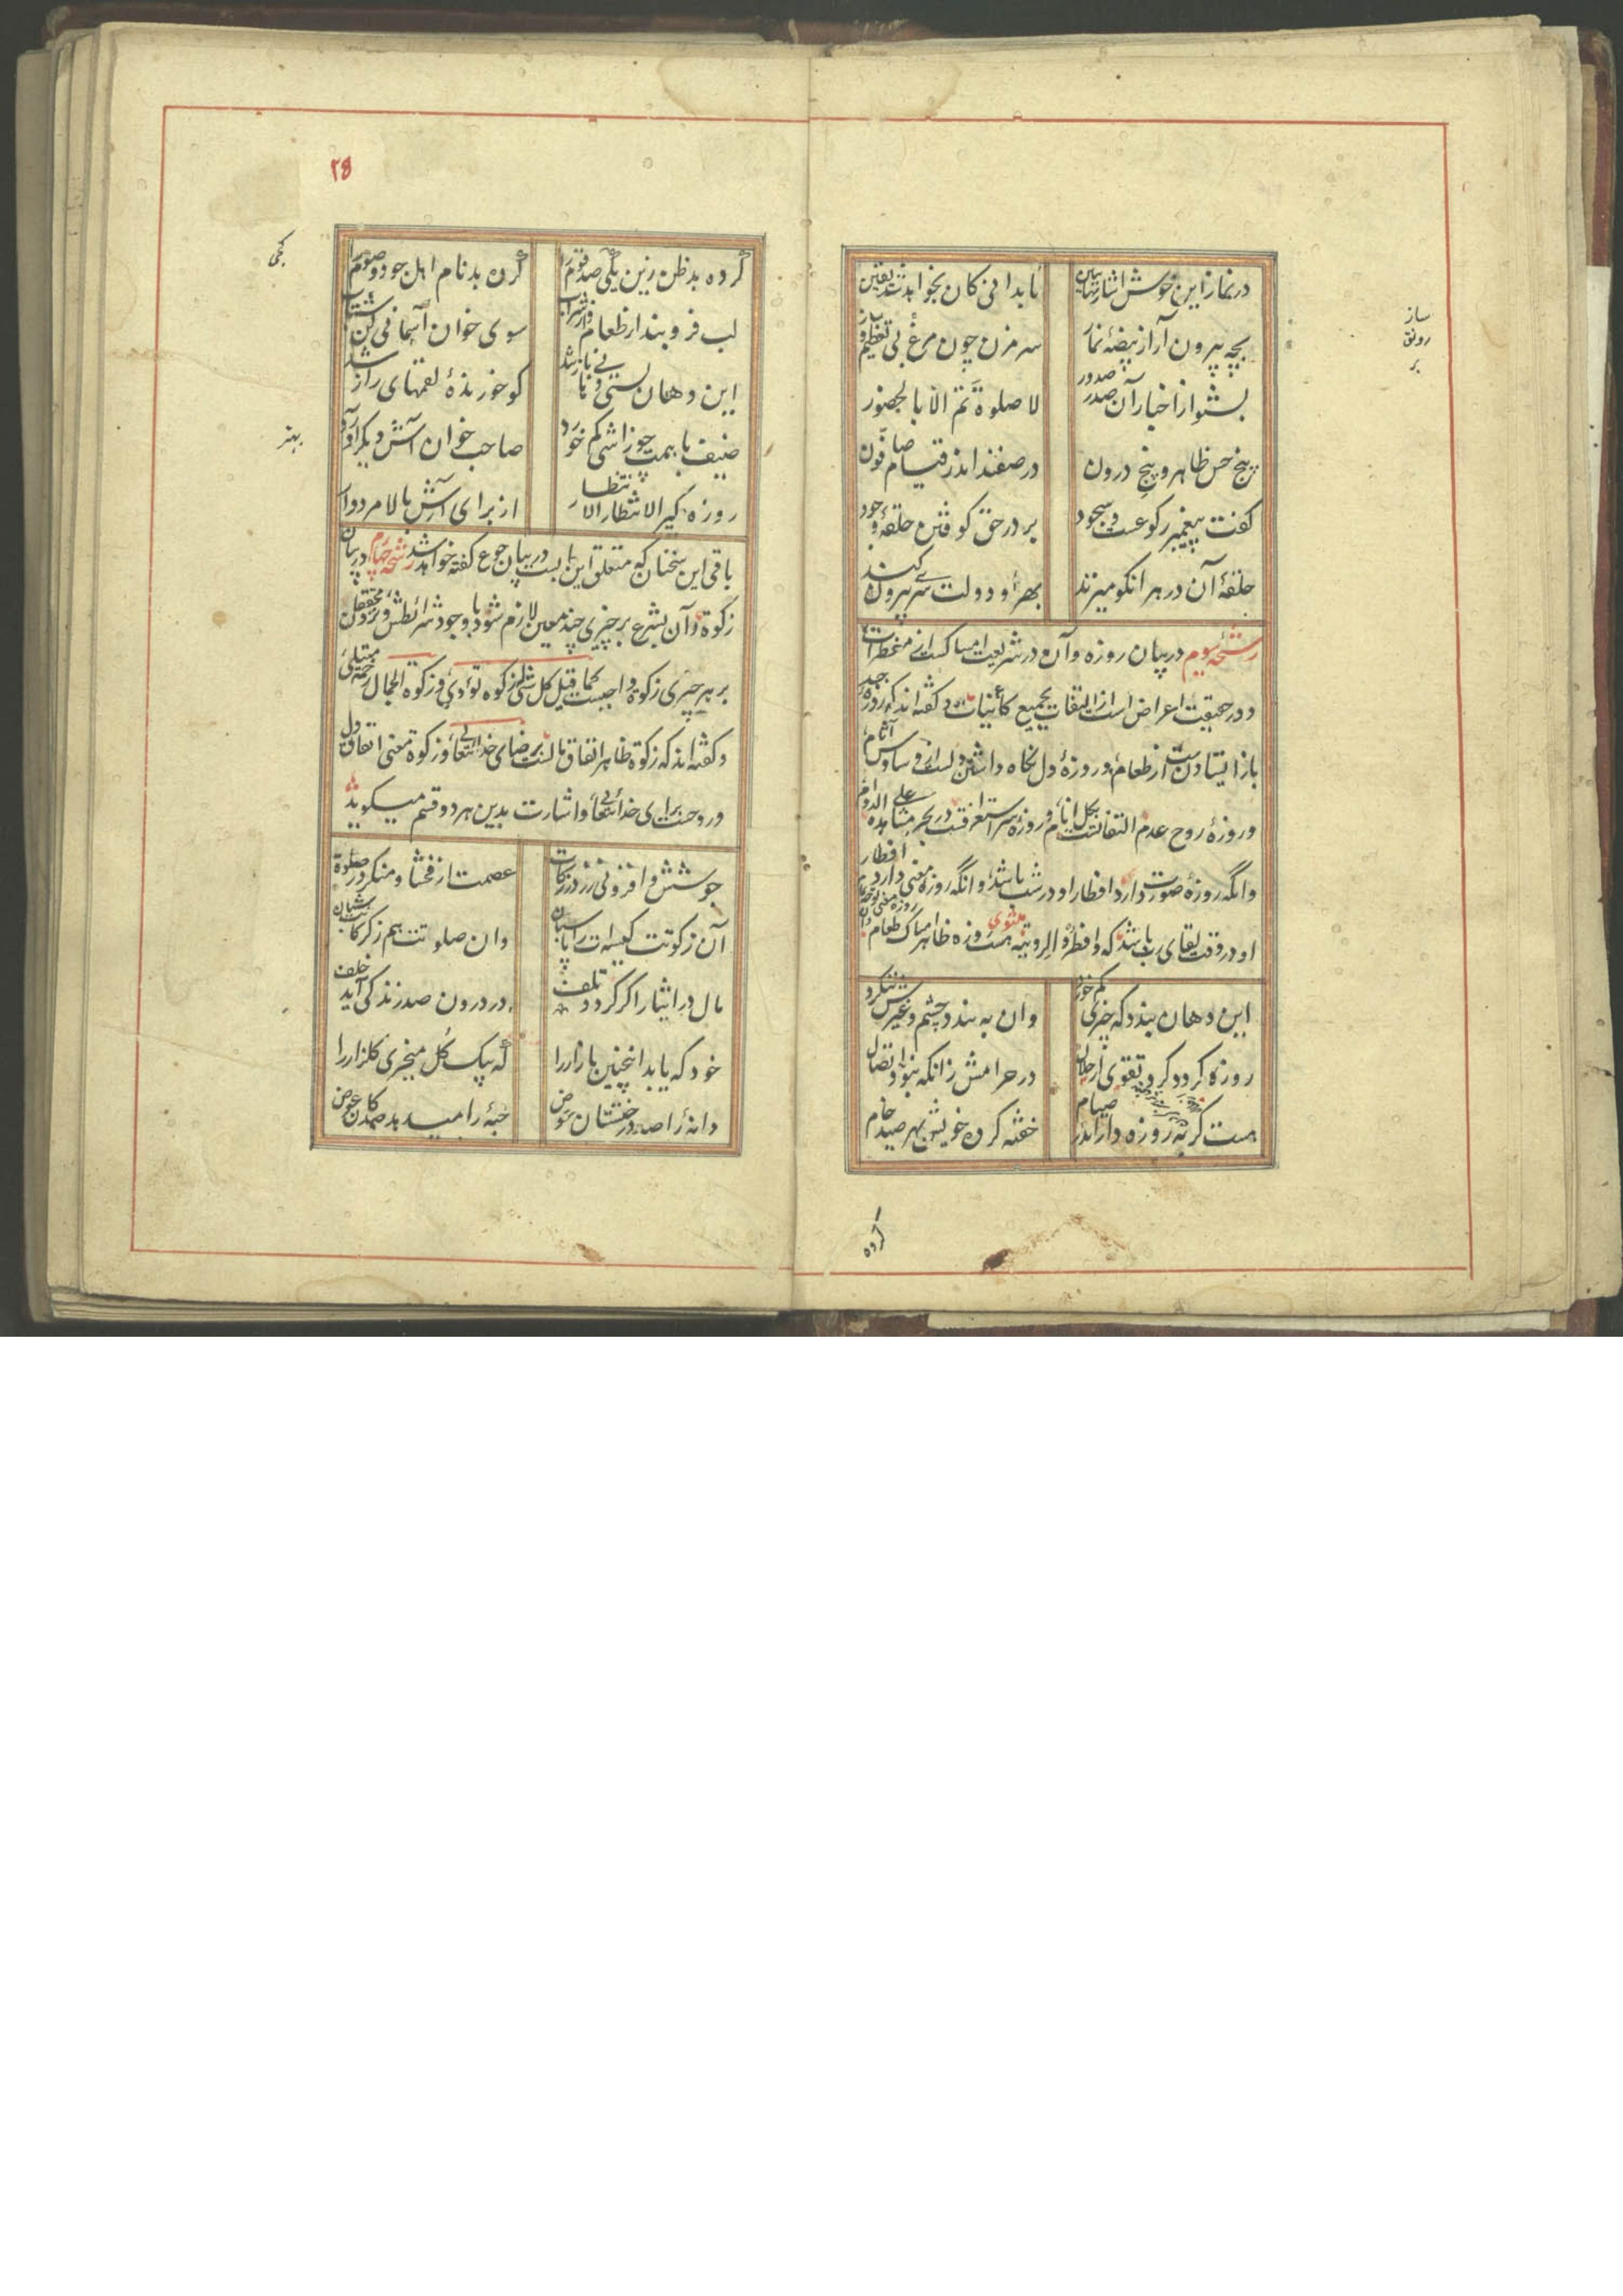 در نماز این خوش اشارتها ببین
تا بدانی کان بخواهد شد یقین
بچه بیرون آر از بیضهٔ نماز
سر مزن چون مرغ بی تعظیم و ساز
بشنو از اخبار آن صدر صدور
لا صلوة تم الا بالحضور
پنج حس ظاهر و پنج درون
در صفند اندر قیام صافون
گفت پیغمبر رکوعست و سجود
بر در حق کوفتن حلقهٔ وجود
حلقهٔ آن در هر آنکو میزند
بهر او دولت سری بیرون کند
رشحهٔ سیوم در بیان روزه و آن در شریعت امساکست از مفطرات
و در حقیقت اعراض است از التفات بجمیع کائنات و گفته اند که روزهٔ جسد
باز ایستادنست از طعام و روزهٔ دل نگاه داشتن دلست از وساوس آثام
و روزهٔ روح عدم التفاتست بکل انام و روزهٔ سر استغراقست در بحر مشاهده علی الدوام
وانگه روزهٔ صورت دارد افطار او در شب باشد وانگه روزهٔ معنی دارد افطار
او در وقت لقای رب باشد که وافطروا لرویته مثنوی هست روزه ظاهر امساک طعام
روزه معنی توجه دان تمام
این دهان بندد که چیزی کم خورد
وان به بندد چشم و غیری ننگرد
روزه گردد گرد تقوی از حلال
در حرامش زانکه نبود اتصال
هست گربه روزه دار اندر صیام
خفته کرده خویش بهر صید خام
کرده
ساز
رونق
بر
۲۵
کرده بدظن زین کجی صد قوم را
کرده بدنام اهل جود و صوم را
لب فرو بند از طعام و از شراب
سوی خوان آسمانی کن شتاب
این دهان بستی دهانی باز شد
کو خورندهٔ لقمهای راز شد
ضیف با همت چو زاشی کم خورد
صاحب خوان آش دیگر آورد
روزه گیر الانتظار الانتظار
از برای آش بالا مردوار
باقی این سخنان که متعلق این بابست در بیان جوع گفته خواهد شد رشحهٔ چهارم در بیان
زکوة و آن بشرع بر چیزی چند معین لازم شود با وجود شرائطش و نزد محققان
بر هر چیزی زکوة واجبست کما قیل کل شئ له زکوة تؤدی و زکوة الجمال رحمة مثلی
و گفته اند که زکوة ظاهر انفاق مالست برضای خدایتعالی و زکوة معنی انفاق دل
و روحست برای خدایتعالی و اشارت بدین هر دو قسم میگوید
جوشش و افزونی زر در زکات
عصمت از فحشا و منکر در صلوة
آن زکوتت کیسه ات را پاسبان
وان صلوتت هم ز گرگانت شبان
مال در ایثار اگر گردد تلف
در درون صد زندگی آید خلف
خود که یابد اینچنین بازار را
که بیک گل میخری گلزار را
دانهٔ را صد درختستان عوض
حبهٔ را میدهد صد کان عوض
کجی
بهتر